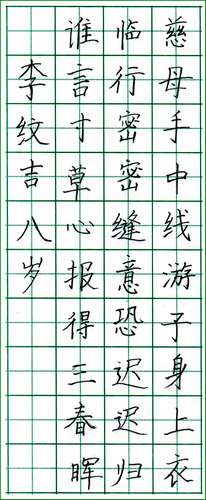 慈母手中线游子身上衣
临行密密缝意恐迟迟归
谁言寸草心报得三春晖
李纹吉八岁